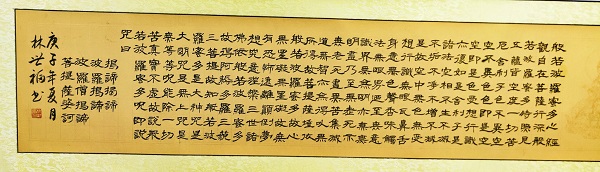 般若波羅蜜多心經
觀自在菩薩行深般
若波羅蜜多時照見
五蘊皆空度一切苦
厄舍利子色不異空
空不異色色即是空
空即是色受想行識
亦復如是舍利子是
諸法空相不生不滅
不垢不淨不增不減
是故空中無色無受
想行識無眼耳鼻舌
身意無色聲香味觸
法無眼界乃至無意
識界無無明亦無無
明盡乃至無老死亦
無老死盡無苦集滅
道無智亦無得以無
所得故菩提薩埵依
般若波羅蜜多故心
無罣礙無罣礙故無
有恐怖遠離顛倒夢
想究竟涅槃三世諸
佛依般若波羅蜜多
故得阿耨多羅三藐
三菩提故知般若波
羅蜜多是大神咒是
大明咒是無上咒是
無等等咒能除一切
苦真實不虛故說般
若波羅蜜多咒即說
咒曰
揭諦揭諦
波羅揭諦
波羅僧揭諦
菩提薩婆訶
庚子年夏月
林世福書